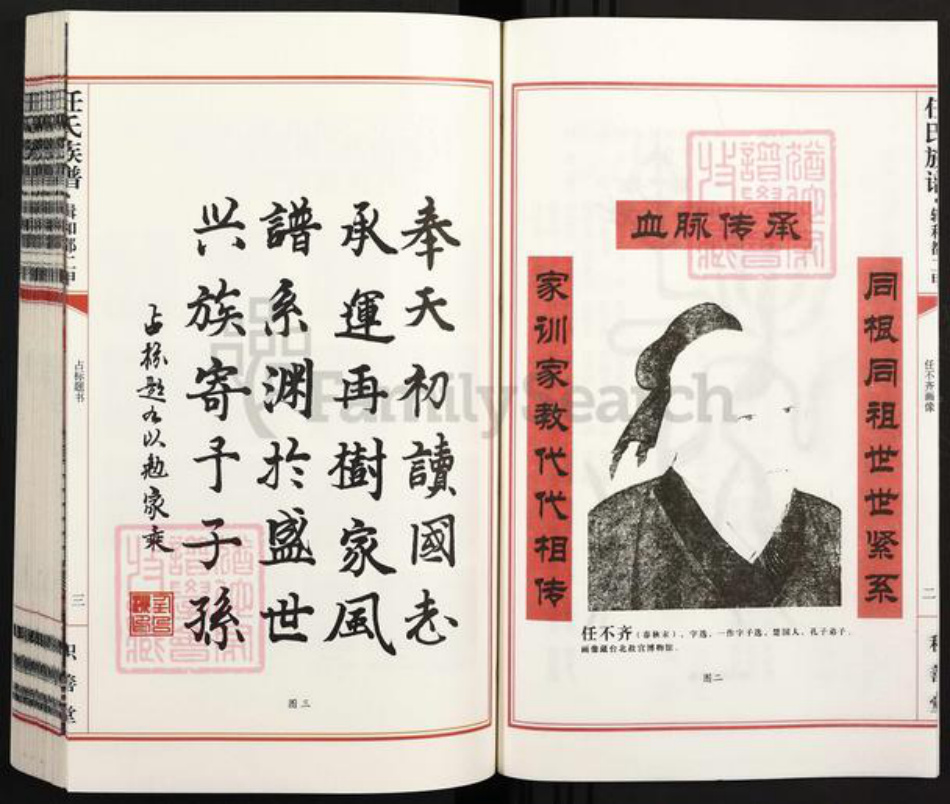 血脉传承
同根同祖世世紧系
家训家教代代相传
任不齐（春秋末），字选，一作字子选，楚国人，孔子弟子。
画像藏台北故宫博物馆。
图二
任不齐画像
二
奉天初讀國志
承運再樹家風
譜系渊於盛世
兴族寄予子孫
占标题书以勉家乘
图三
任氏族谱
占标题书
三
积善堂
FamilySearch